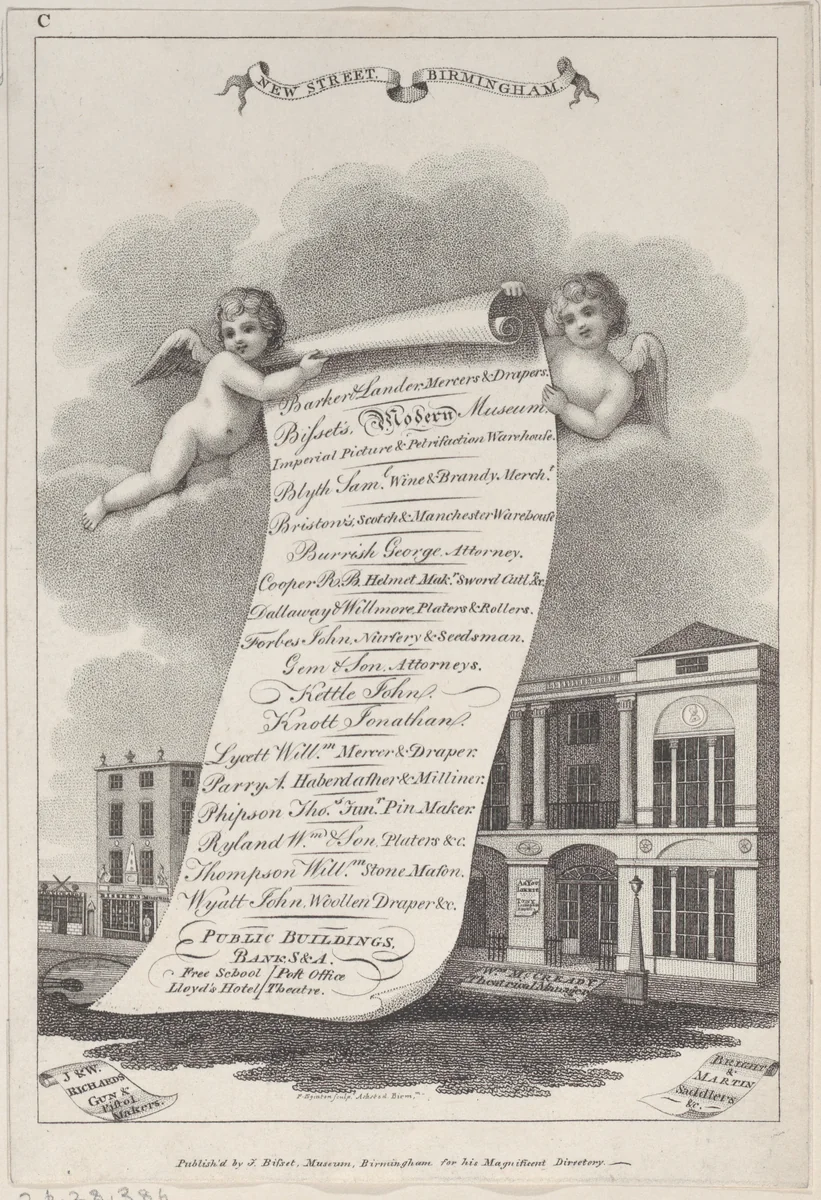 C
NEW STREET. BIRMINGHAM.
Barker & Lander, Mercers & Drapers.
Biſset's, Modern Museum.
Imperial Picture & Petrifaction Warehouſe.
Blyth Sam.l Wine & Brandy Merch.t
Briston's, Scotch & Manchester Warehouſe
Burrish George. Attorney.
Cooper R.B. Helmet Mak.r Sword Cutl.r &c.
Dallaway & Willmore, Platers & Rollers.
Forbes John, Nurſery & Seedsman.
Gem & Son. Attorneys.
Kettle John.
Knott Jonathan.
Lycett Will.m Mercer & Draper.
Parry A. Haberdaſher & Milliner.
Phipson Tho.s Jun.r Pin Maker.
Ryland W.m & Son, Platers &c.
Thompson Will.m Stone Maſon.
Wyatt John, Woollen Draper &c.
PUBLIC BUILDINGS,
BANK, S&A.
Free School / Poſt Office
Lloyd's Hotel / Theatre.
As You
LIKE IT
Wm. McCREADY
Theatrical Manager
J & W.
RICHARDS
GUN &
Piſtol
Makers.
BRIGHT
&
MARTIN
Saddlers
&c.
Aſhted Birm.m
Publish'd by J. Biſset, Museum, Birmingham for his Magnificent Directory.